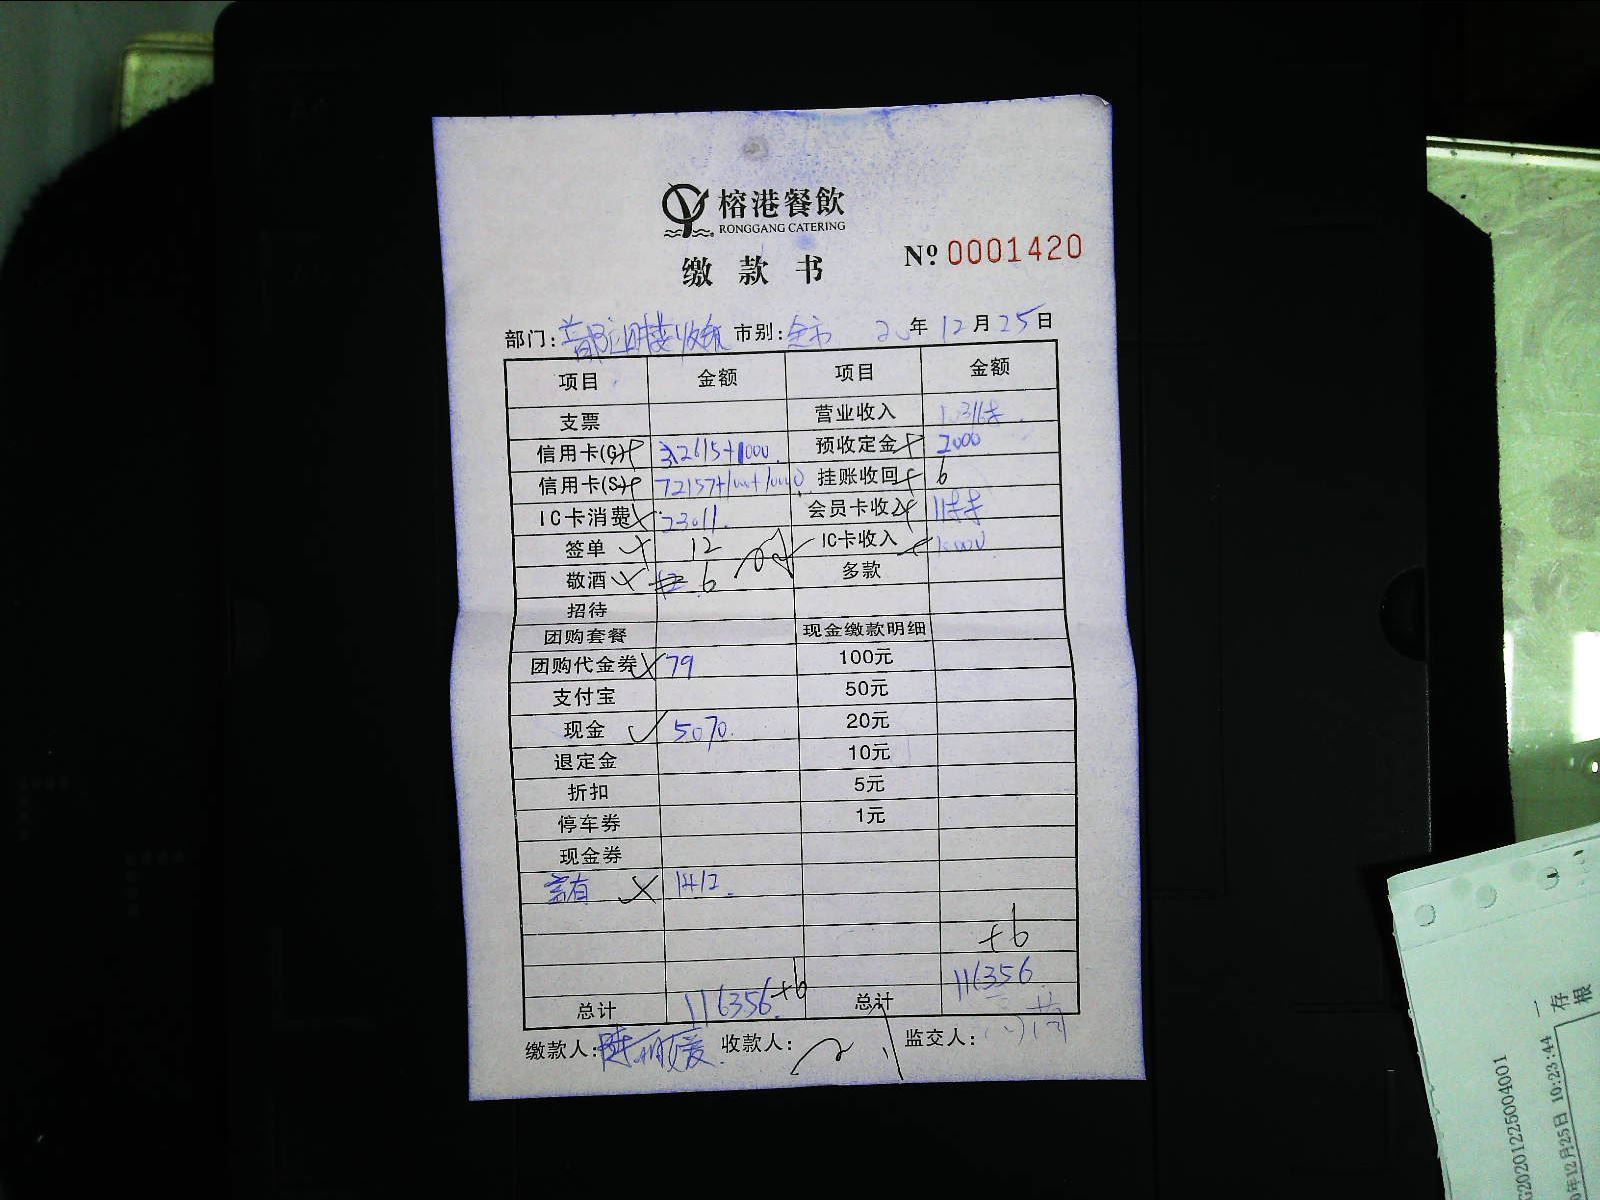 榕港餐飲
RONGGANG CATERING
缴款书
№ 0001420
部门: 市别: 全市 20年12月25日
项目 金额 项目 金额
支票 营业收入
信用卡(G) 32615+1000 预收定金 2000
信用卡(S) 72157+ 挂账收回 6
IC卡消费 23011. 会员卡收入
签单 12 IC卡收入
敬酒 6 多款
招待
团购套餐 现金缴款明细
团购代金券 79 100元
支付宝 50元
现金 5070. 20元
退定金 10元
折扣 5元
停车券 1元
现金券
1412.
+6
总计 116356.+6 总计 116356
缴款人: 收款人: 监交人:
G20201225004001
年12月25日 10:23:44
一存根